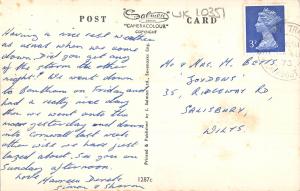 POST CARD
Salmon
"CAMERACOLOUR"
COPYRIGHT
UK 10351
3p
Having a nice rest weather
as usual when we come
down. Did you get any
of the storm the other
night? We went down
to Bantham on Friday and
had a really nice day
then we went onto the
moors yesterday and down
into Cornwall last week
other wise we have just
lazed about. See you on
Sunday afternoon.
Love Maureen Derek
Simon & Sharon
Printed & Published by J. Salmon Ltd., Sevenoaks Eng.
Mr & Mrs. M. Betts,
"Joydens"
35, Ridgeway Rd
Salisbury,
Wilts.
1287c